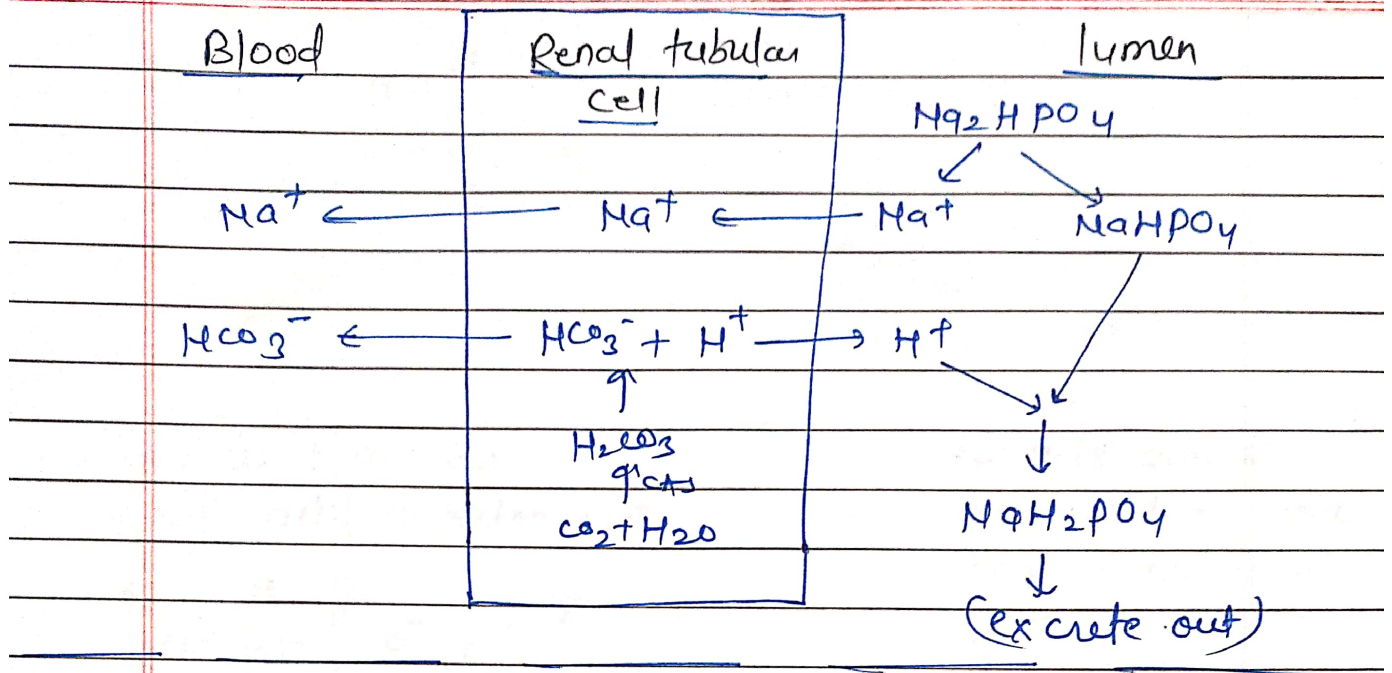 Blood Renal tubular lumen
Cell
Na2HPO4
Na+ ← Na+ ← Na+ NaHPO4
HCO3- ← HCO3- + H+ → H+
H2CO3
CO2 + H2O NaH2PO4
(excrete out)